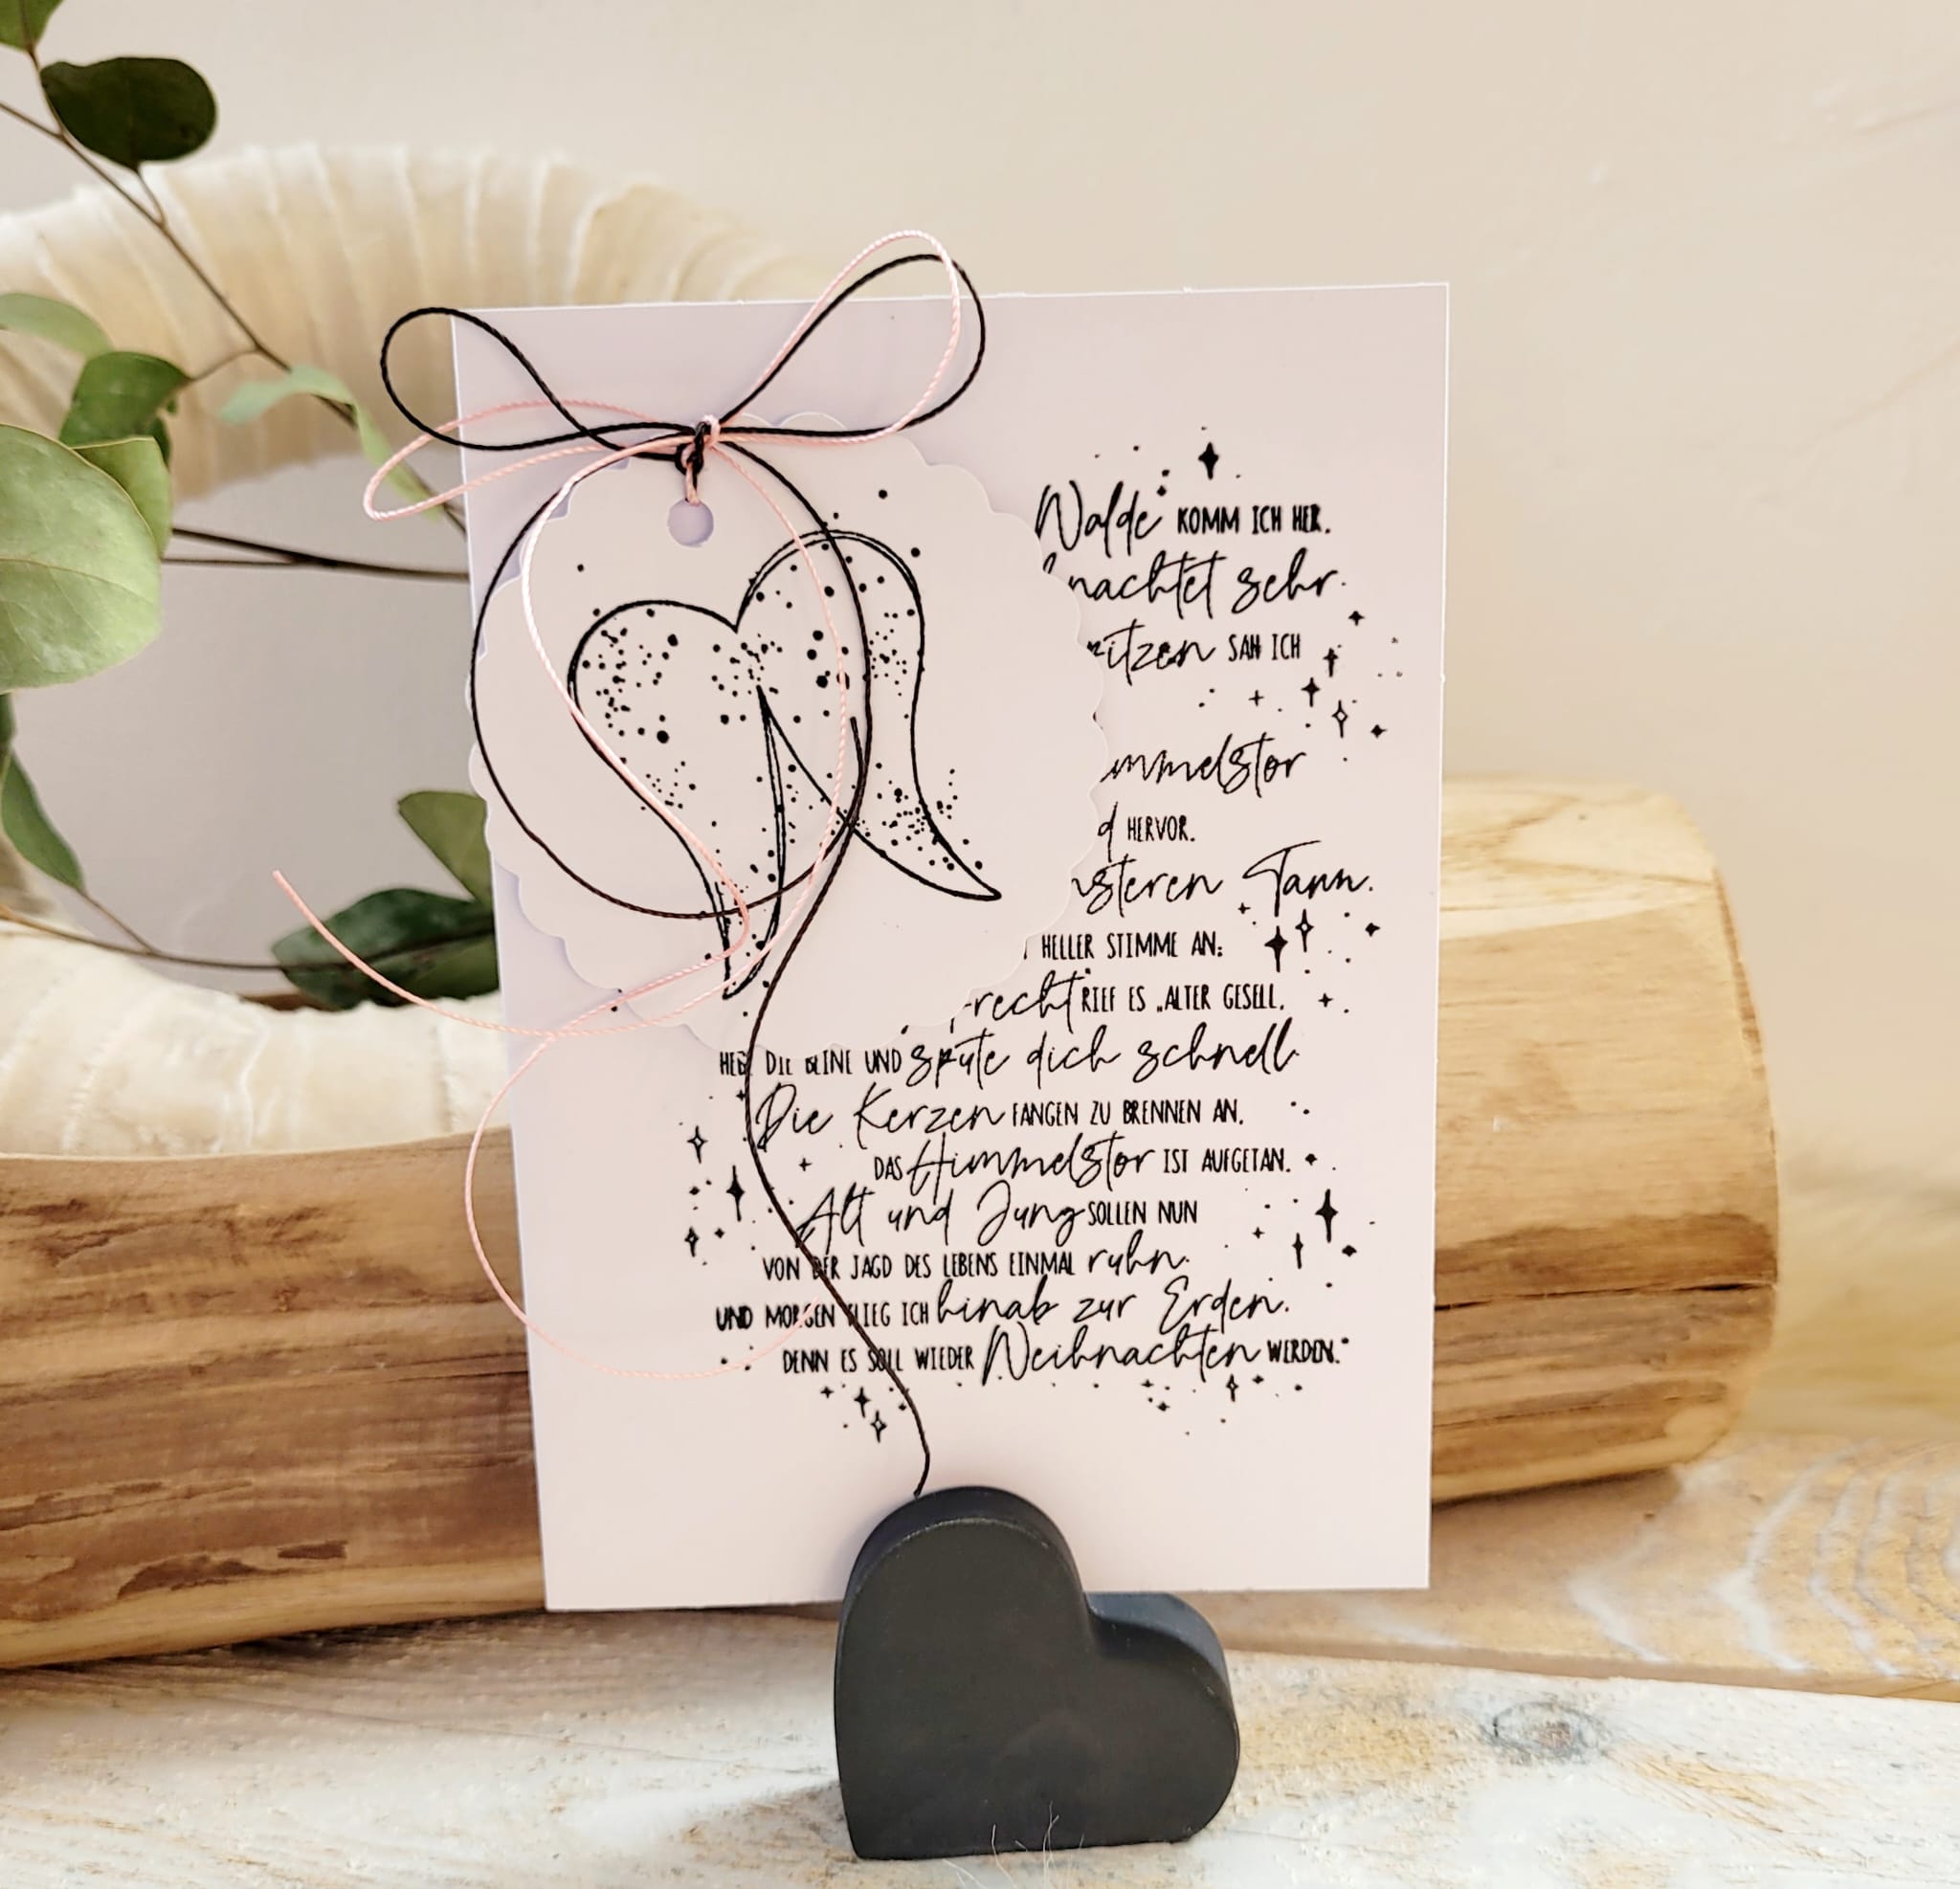 Walde KOMM ICH HER.
nachtet sehr.
itzen SAH ICH
mmelstor
d HERVOR.
steren Tann.
HELLER STIMME AN:
recht RIEF ES „ALTER GESELL,
HEBE DIE BEINE UND spute dich schnell.
Die Kerzen FANGEN ZU BRENNEN AN,
DAS Himmelstor IST AUFGETAN.
Alt und Jung SOLLEN NUN
VON DER JAGD DES LEBENS EINMAL ruhn.
UND MORGEN FLIEG ICH hinab zur Erden.
DENN ES SOLL WIEDER Weihnachten WERDEN."